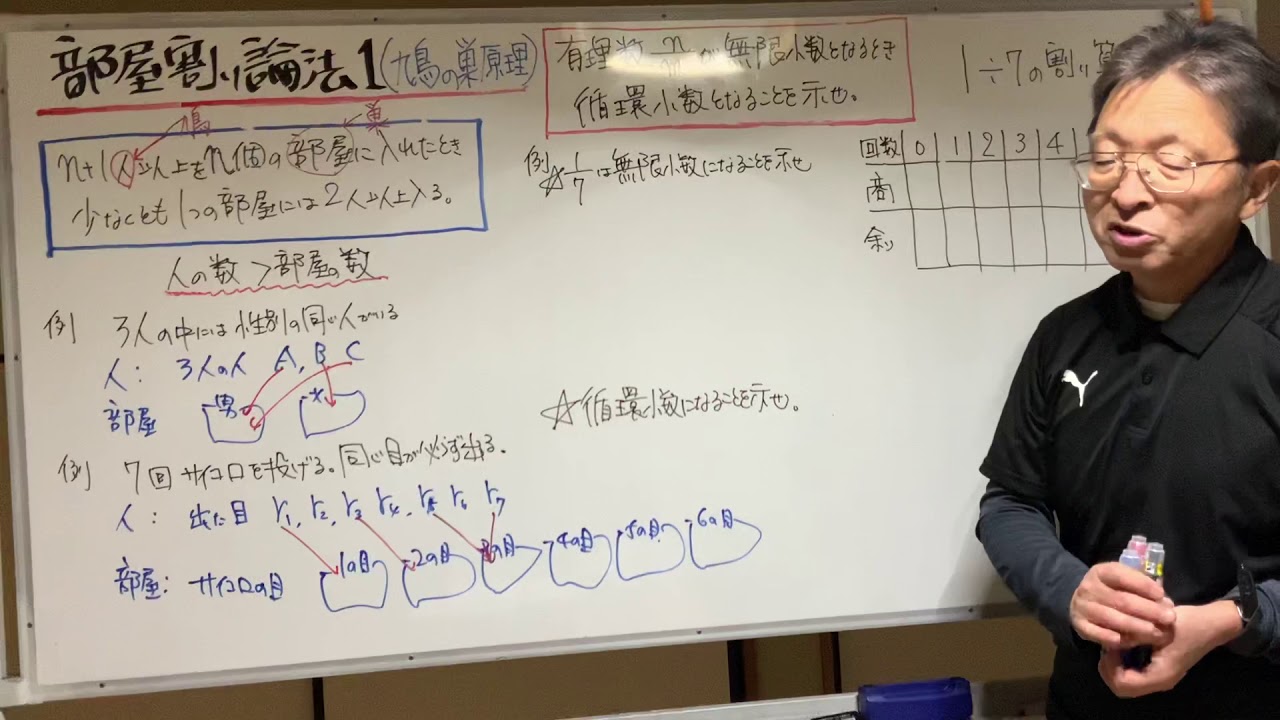 部屋割り論法1(九鳥の巣原理)
鳥 巣
n+1人以上をn個の部屋に入れたとき
少なくとも1つの部屋には2人以上入る。
人の数>部屋の数
例 3人の中には性別の同じ人がいる
人: 3人の人 A, B C
部屋 男 女
例 7回サイコロを投げる。同じ目が必ず出る。
人: 出た目 r1, r2, r3 r4, r5 r6 r7
部屋: サイコロの目 1の目 2の目 3の目 4の目 5の目 6の目
有理数 n/m が無限小数となるとき
循環小数となることを示せ。
例 ☆ 1/7 は無限小数になることを示せ
☆循環小数になることを示せ。
1÷7の割り
回数 0 1 2 3 4
商
余り